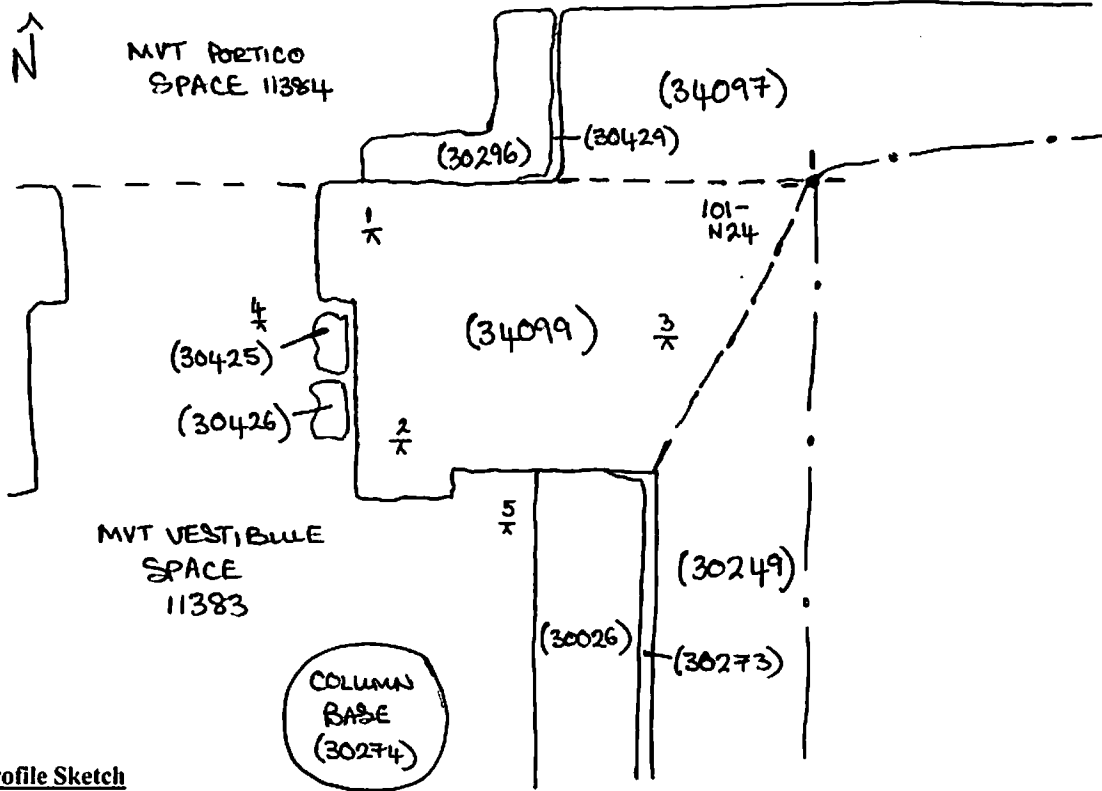 N
MVT PORTICO
SPACE 11384
(34097)
(30296)
(30429)
1
101-
N24
4
(34099)
3
(30425)
(30426)
2
5
MVT VESTIBULE
SPACE
11383
(30249)
(30026)
(30273)
COLUMN
BASE
(30274)
rofile Sketch